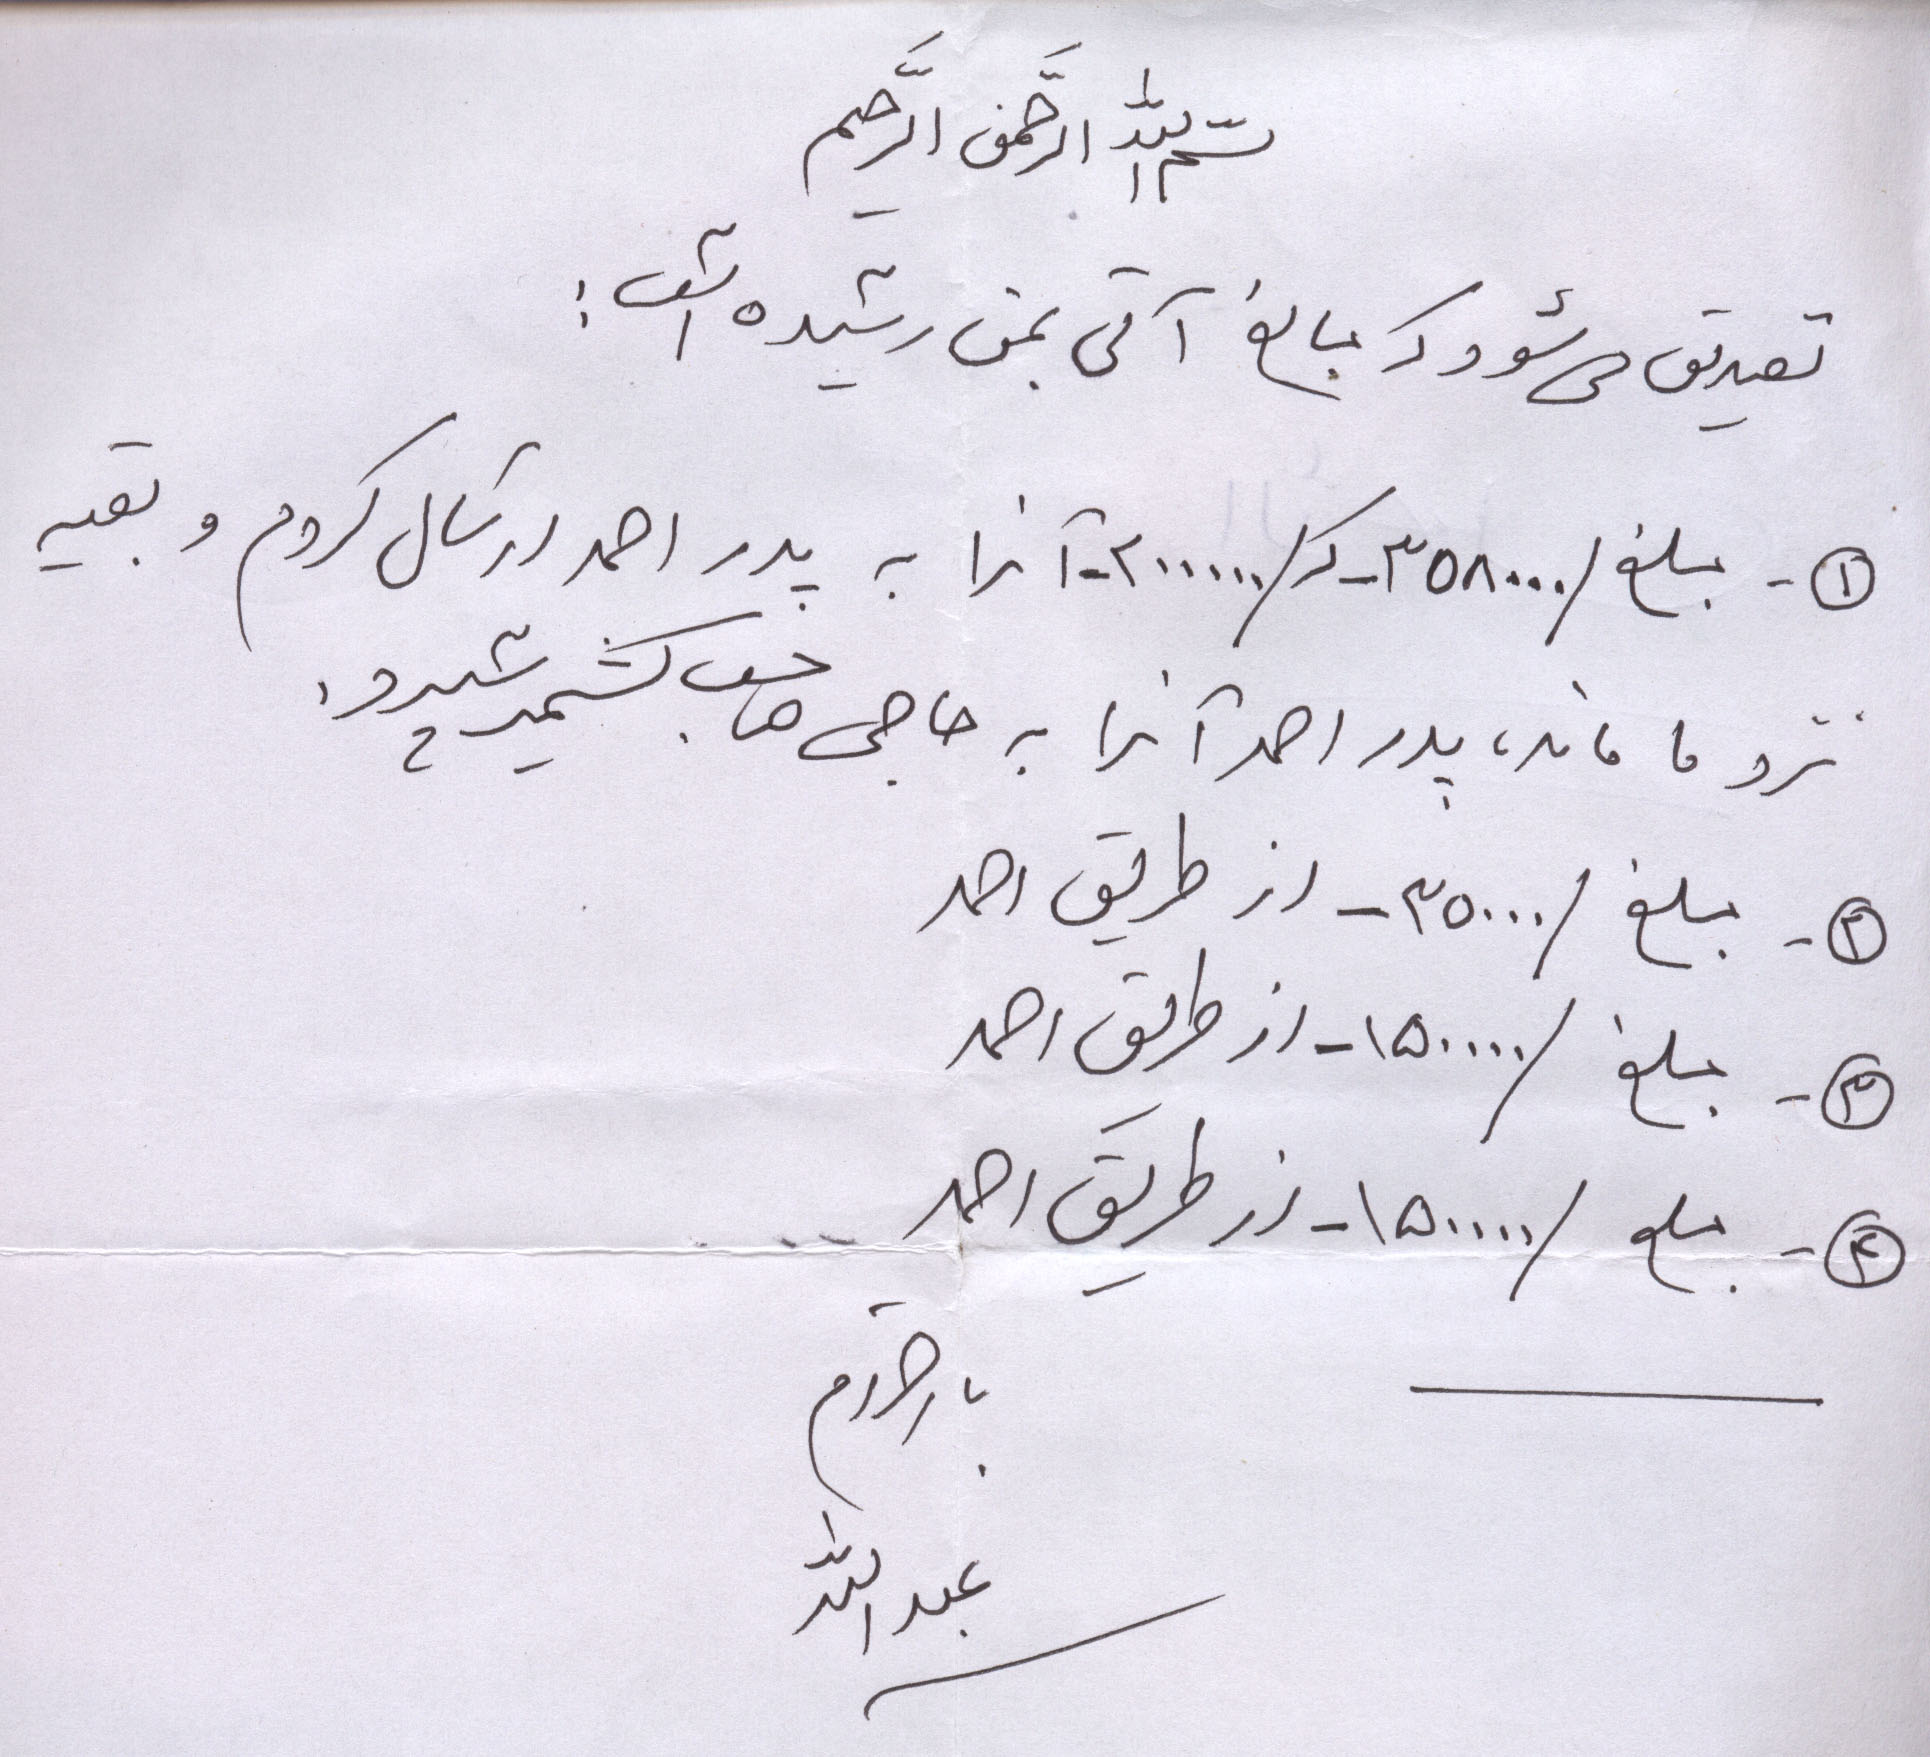 بسم الله الرَّحمن الرَّحیم
تصدیق می شود که مبالغ آتی بمن رسیده است:
① - مبلغ /۳۵۸۰۰۰- که /۲۰۰۰۰۰- آنرا به پدر احمد ارسال کردم و بقیه
نزد ما ماند، پدر احمد آنرا به حاجی صاحب کشمیر سپرد.
② - مبلغ /۳۵۰۰۰- از طریق احمد
③ - مبلغ /۱۵۰۰۰۰- از طریق احمد
④ - مبلغ /۱۵۰۰۰۰- از طریق احمد
با احترام
عبدالله